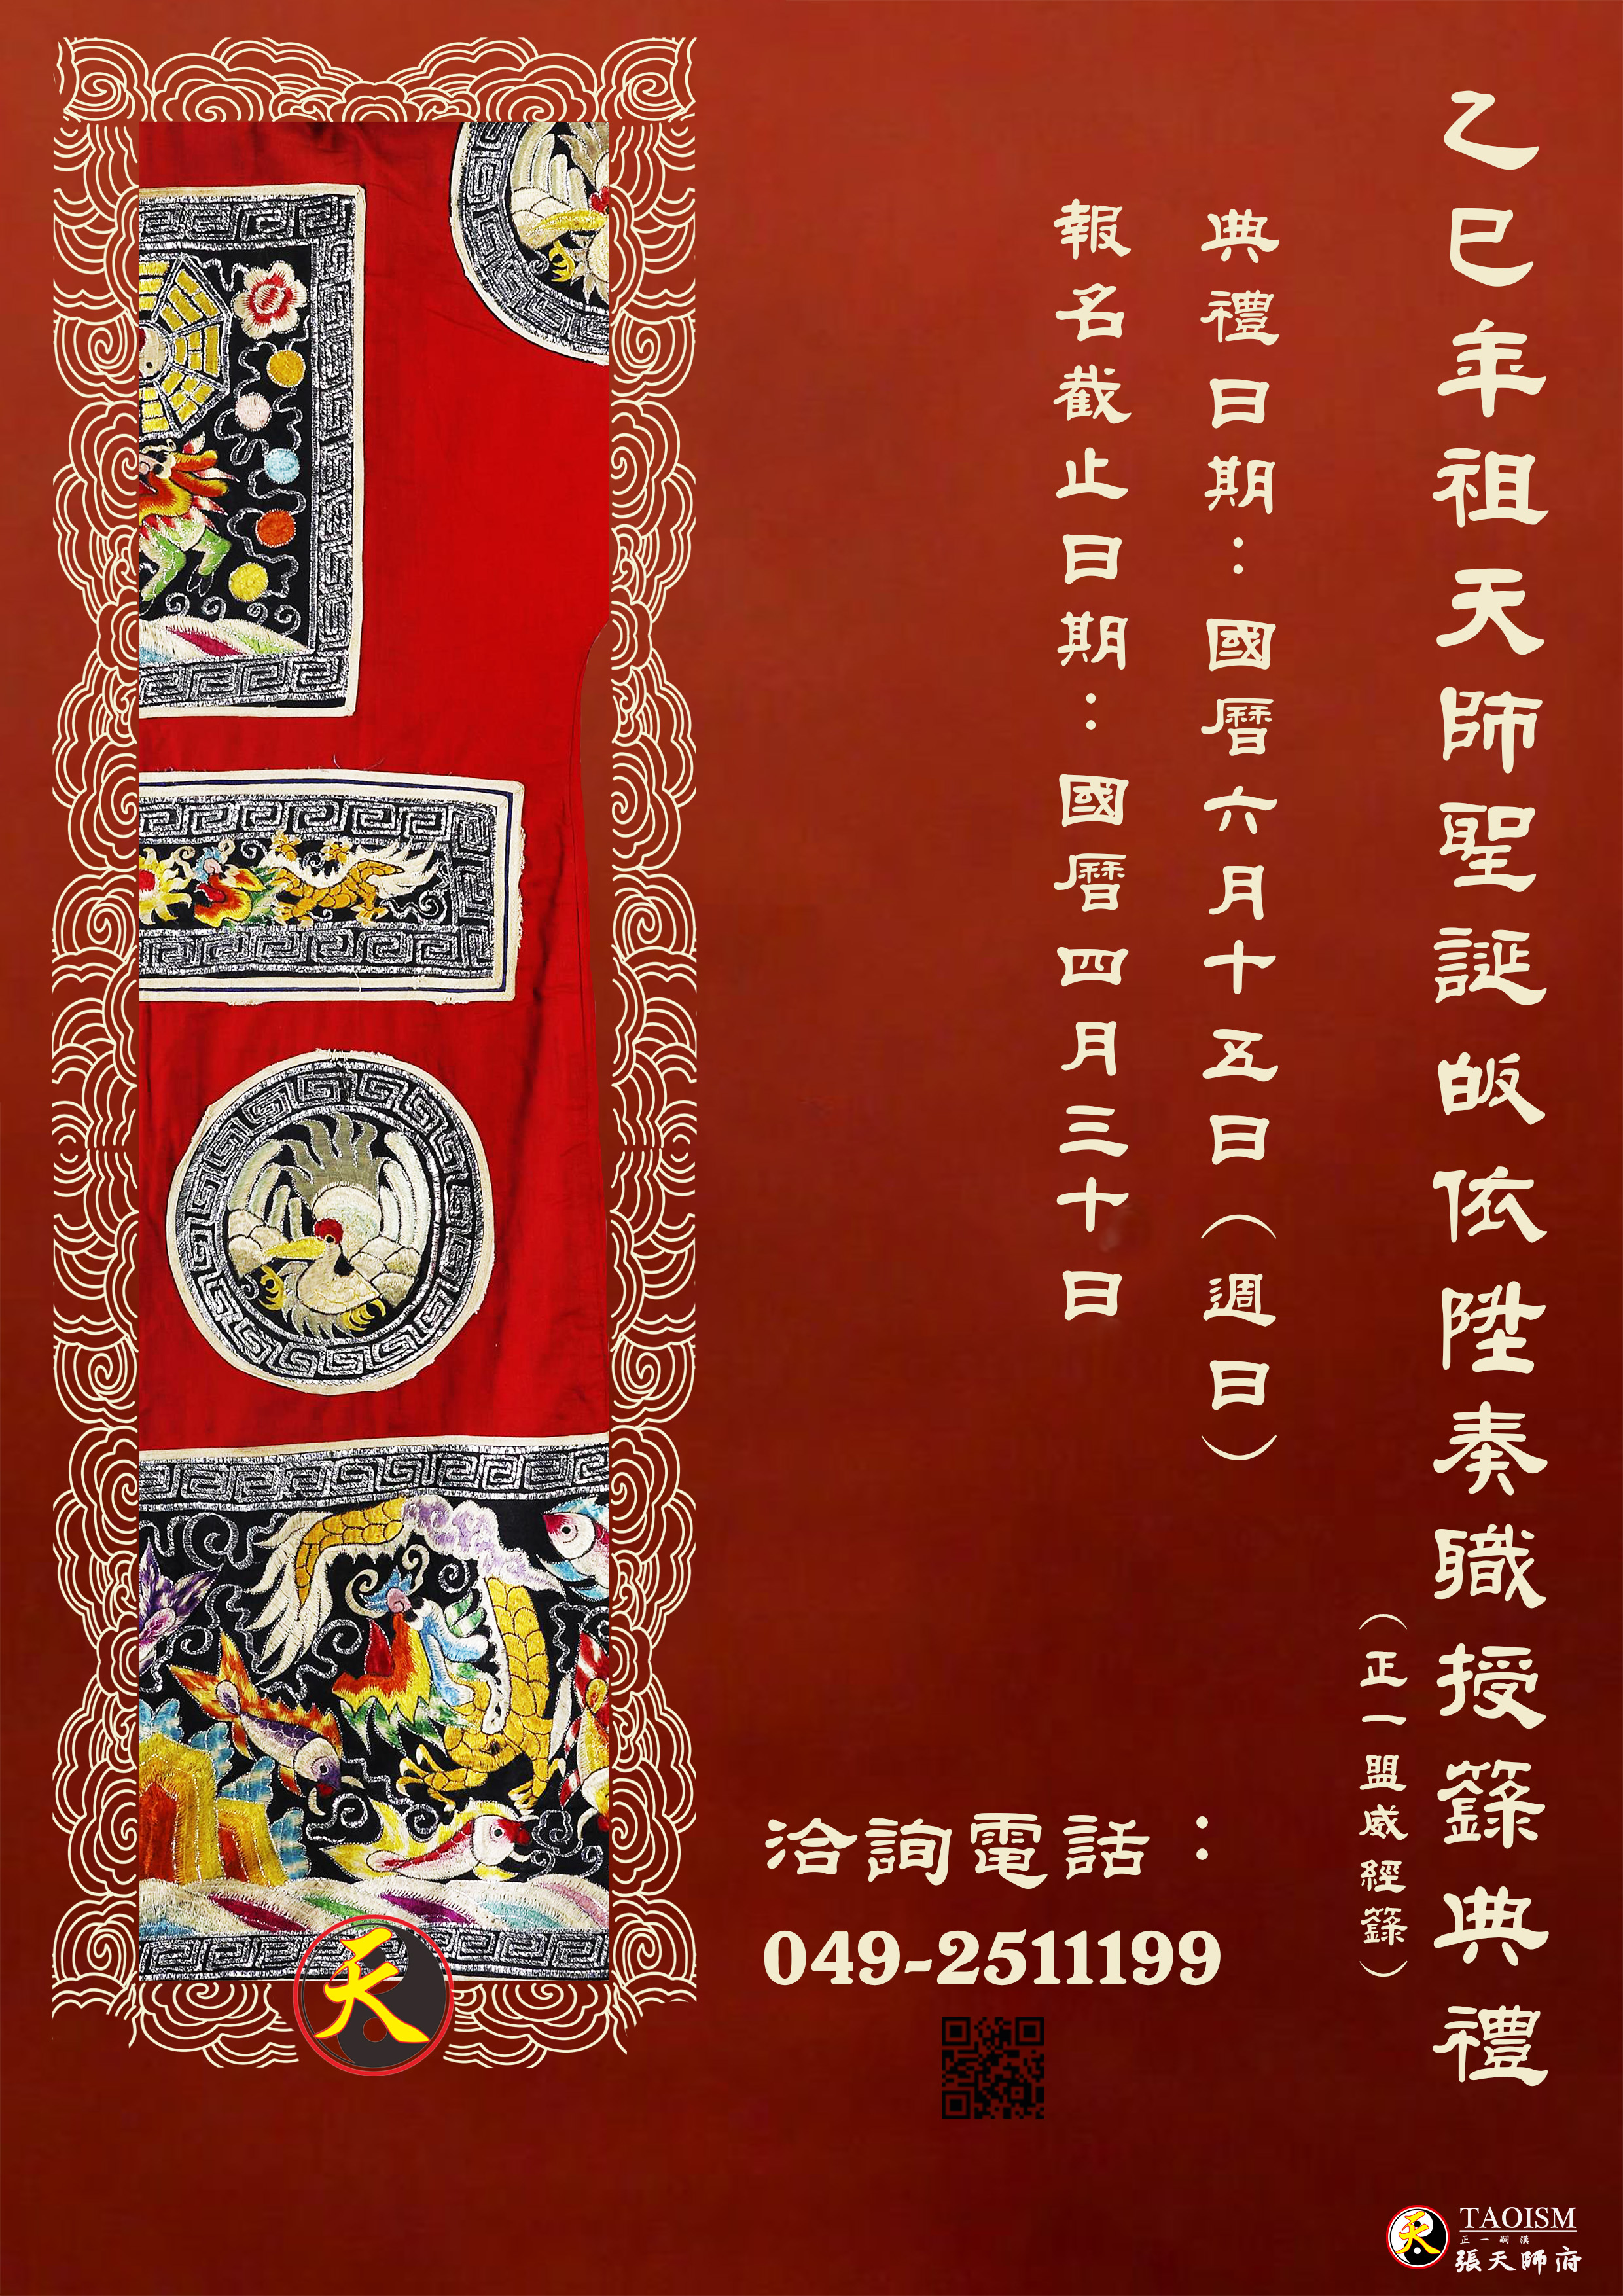 乙巳年祖天師聖誕皈依陞奏職授籙典禮
（正一盟威經籙）
典禮日期：國曆六月十五日（週日）
報名截止日期：國曆四月三十日
洽詢電話：
049-2511199
天
天
TAOISM
正一嗣漢
張天師府